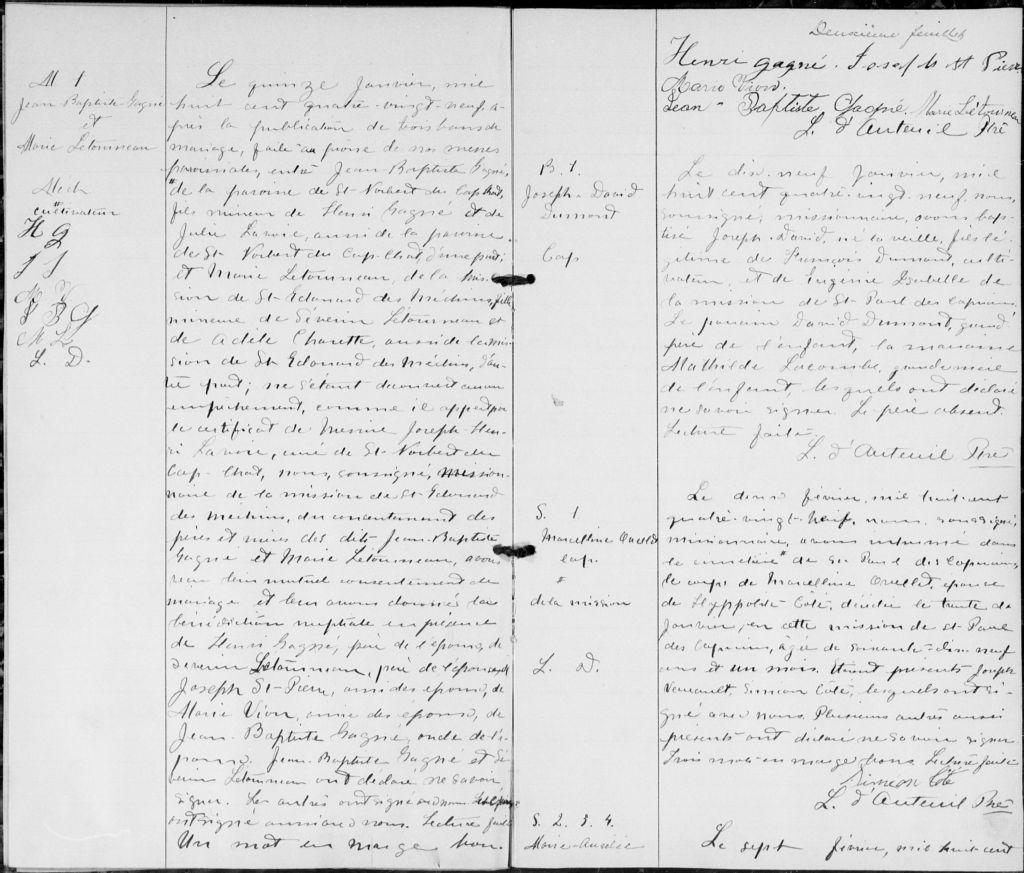 M 1
Jean-Baptiste Gagné
et
Marie Letourneau
Mech
#
cultivateur
H g
J S
M V
J B G
M L
L. D.
Le quinze Janvier, mil
huit cent quatre-vingt-neuf a-
près la publication de trois bans de
mariage, faite au prône de nos messes
paroissiales, entre Jean-Baptiste Gagné,
# de la paroisse de St-Norbert du Cap-Chat,
fils mineur de Henri Gagné et de
Julie Lavoie, aussi de la paroisse
de St-Norbert du Cap-Chat d'une part;
et Marie Letourneau, de la mis-
sion de St-Edouard des Méchins, fille
mineure de Séverin Letourneau et
de Adèle Charette, aussi de la mis-
sion de St-Edouard des Méchins, d'au-
tre part; ne s'étant découvert aucun
empêchement, comme il appert par
le certificat de Messire Joseph-Hen-
ri Lavoie, curé de St-Norbert du
Cap-Chat, nous, soussigné, mission-
naire de la mission de St-Edouard
des Mechins, du consentement des
pères et mères des dits Jean-Baptiste
Gagné et Marie Letourneau, avons
reçu leur mutuel consentement de
mariage et leur avons donné la
bénédiction nuptiale en présence
de Henri Gagné, père de l'époux, de
Séverin Letourneau, père de l'épouse, de
Joseph St-Pierre, ami des époux, de
Marie Vion, amie des époux, de
Jean-Baptiste Gagné, oncle de l'é-
poux. Jean-Baptiste Gagné et Sé-
verin Letourneau ont déclaré ne savoir
signer. Les autres ont signé avec nous. Les époux
ont signé aussi avec nous. Lecture faite
Un mot en marge bon.
Deuxième feuillet
Henri gagné. Josef St Pierre
Marie Vion.
Jean-Baptiste Gagné. Marie Létourneau
L. d'Auteuil Ptre
B. 1.
Joseph-David
Dumont
Cap
Le dix-neuf Janvier, mil
huit cent quatre-vingt-neuf, nous,
soussigné, missionnaire, avons bap-
tisé Joseph-David, né la veille, fils lé-
gitime de François Dumont, culti-
vateur, et de Eugénie Isabelle de
la mission de St-Paul des Capucins.
Le parrain David Dumont, grand-
père de l'enfant, la marraine
Mathilde Lacombe, grand'mère
de l'enfant, lesquels ont déclaré
ne savoir signer. Le père absent.
Lecture faite.
L. d'Auteuil Ptre
S. 1
Marcelline Ouellet
Cap.
#
de la mission
L. D.
Le deux février, mil huit cent
quatre-vingt-neuf, nous, soussigné,
missionnaire, avons inhumé dans
le cimetière # de St-Paul des Capucins,
le corps de Marcelline Ouellet, épouse
de Hyppolite Côté, décédée le trente de
Janvier, en cette mission de St-Paul
des Capucins, âgée de soixante-dix-neuf
ans et un mois. Etant présents Joseph
Simeon Côté, lesquels ont si-
gné avec nous. Plusieurs autres aussi
présents ont déclaré ne savoir signer.
Trois mots en marge bons. Lecture faite
Simeon Coté
L. d'Auteuil Ptre
S. 2. 3. 4.
Marie-Aurélie
Le sept février, mil huit cent